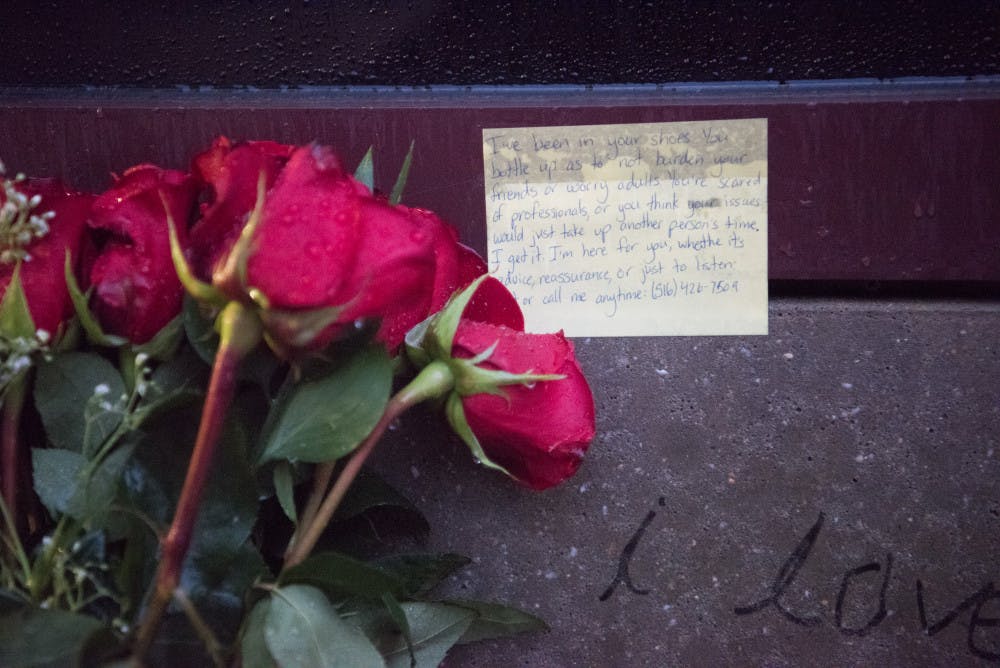 I've been in your shoes You
bottle up as to not burden your
friends or worry adults You're scared
of professionals, or you think your issues
would just take up another person's time.
I get it. I'm here for you, whethe its
advice, reassurance, or just to listen.
or call me anytime: (516) 426-7509
i love